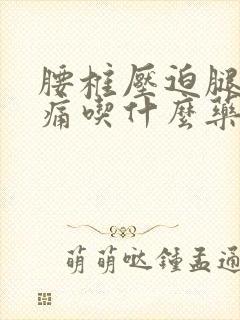 腰柱壓迫腿
痛喫什麽藥
萌萌哒鍾孟通